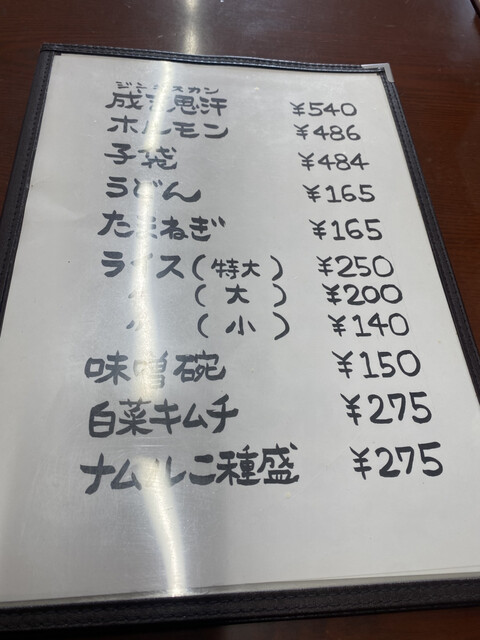 ジンギスカン
成吉思汗 ¥540
ホルモン ¥486
子袋 ¥484
うどん ¥165
たまねぎ ¥165
ライス(特大) ¥250
〃(大) ¥200
〃(小) ¥140
味噌碗 ¥150
白菜キムチ ¥275
ナムル二種盛 ¥275